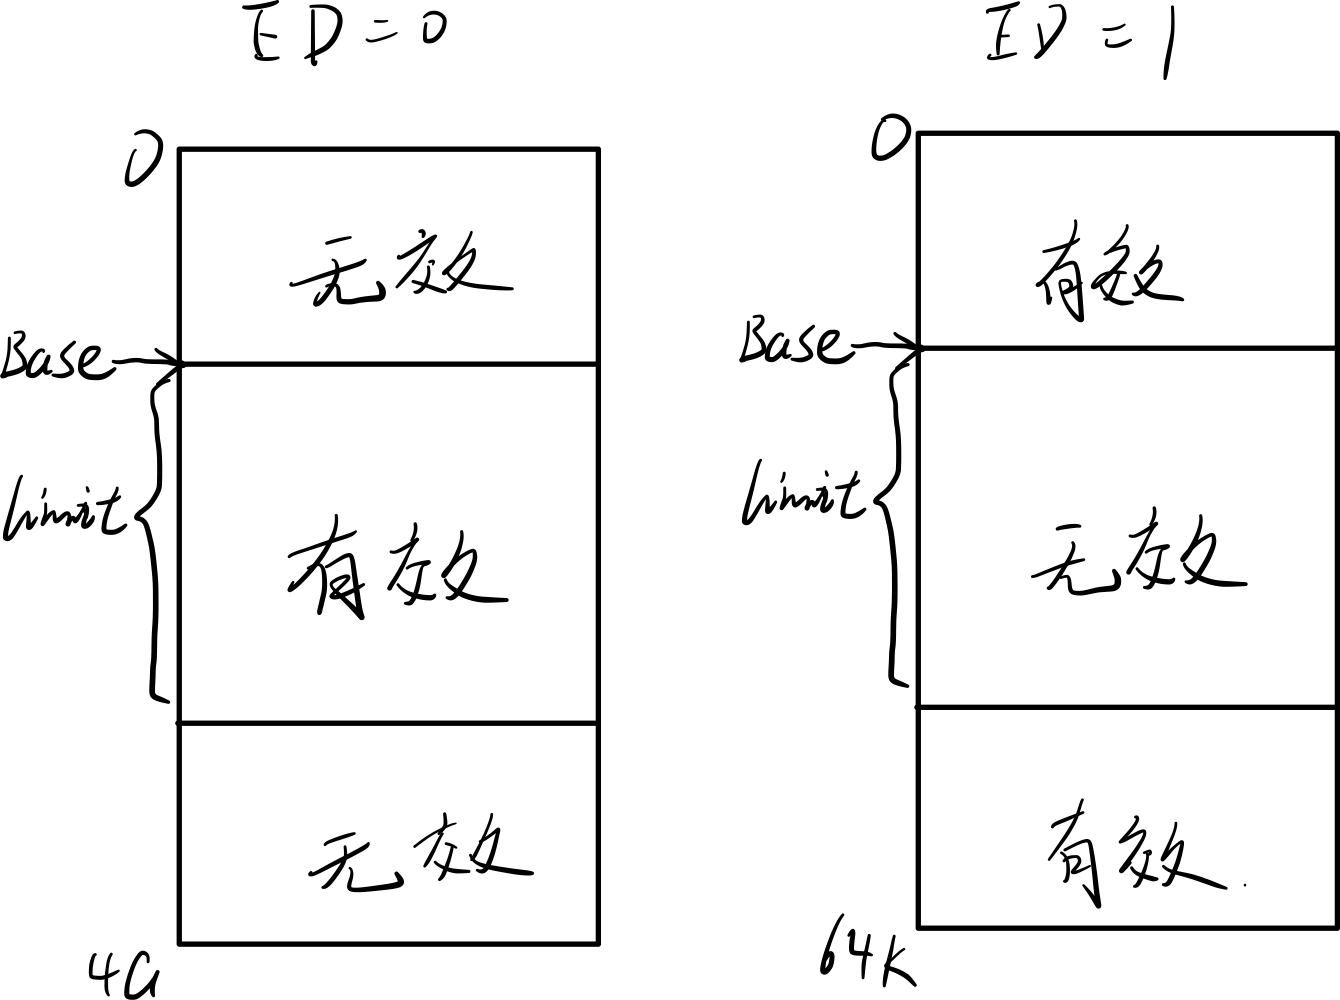 ED=0
0
无效
Base
limit
有效
无效
4G
ED=1
0
有效
Base
limit
无效
有效
64K